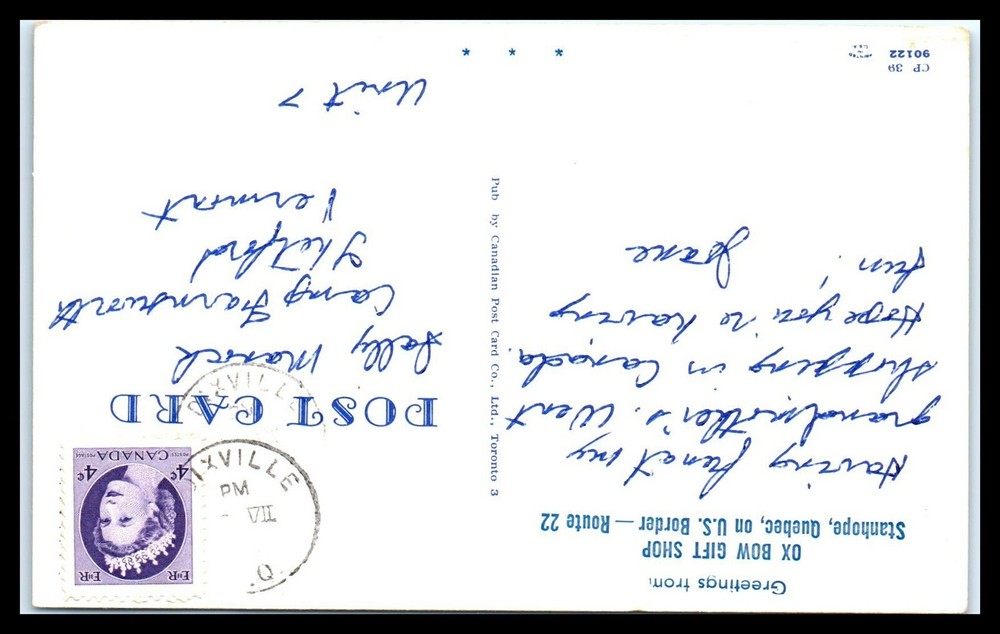 Greetings from:
OX BOW GIFT SHOP
Stanhope, Quebec, on U.S. Border — Route 22
Having fun at my
grandmother's. Went
shopping in Canada.
Hope you're having
fun!
Jane
CP 39
90122
Pub by Canadian Post Card Co., Ltd., Toronto 3
POST CARD
Sally
Camp Farnsworth
Thetford
Vermont
Unit 7
* * *
EIIR EIIR
4¢ 4¢
POSTES CANADA POSTAGE
DIXVILLE
PM
VII
Q.
DIXVILLE